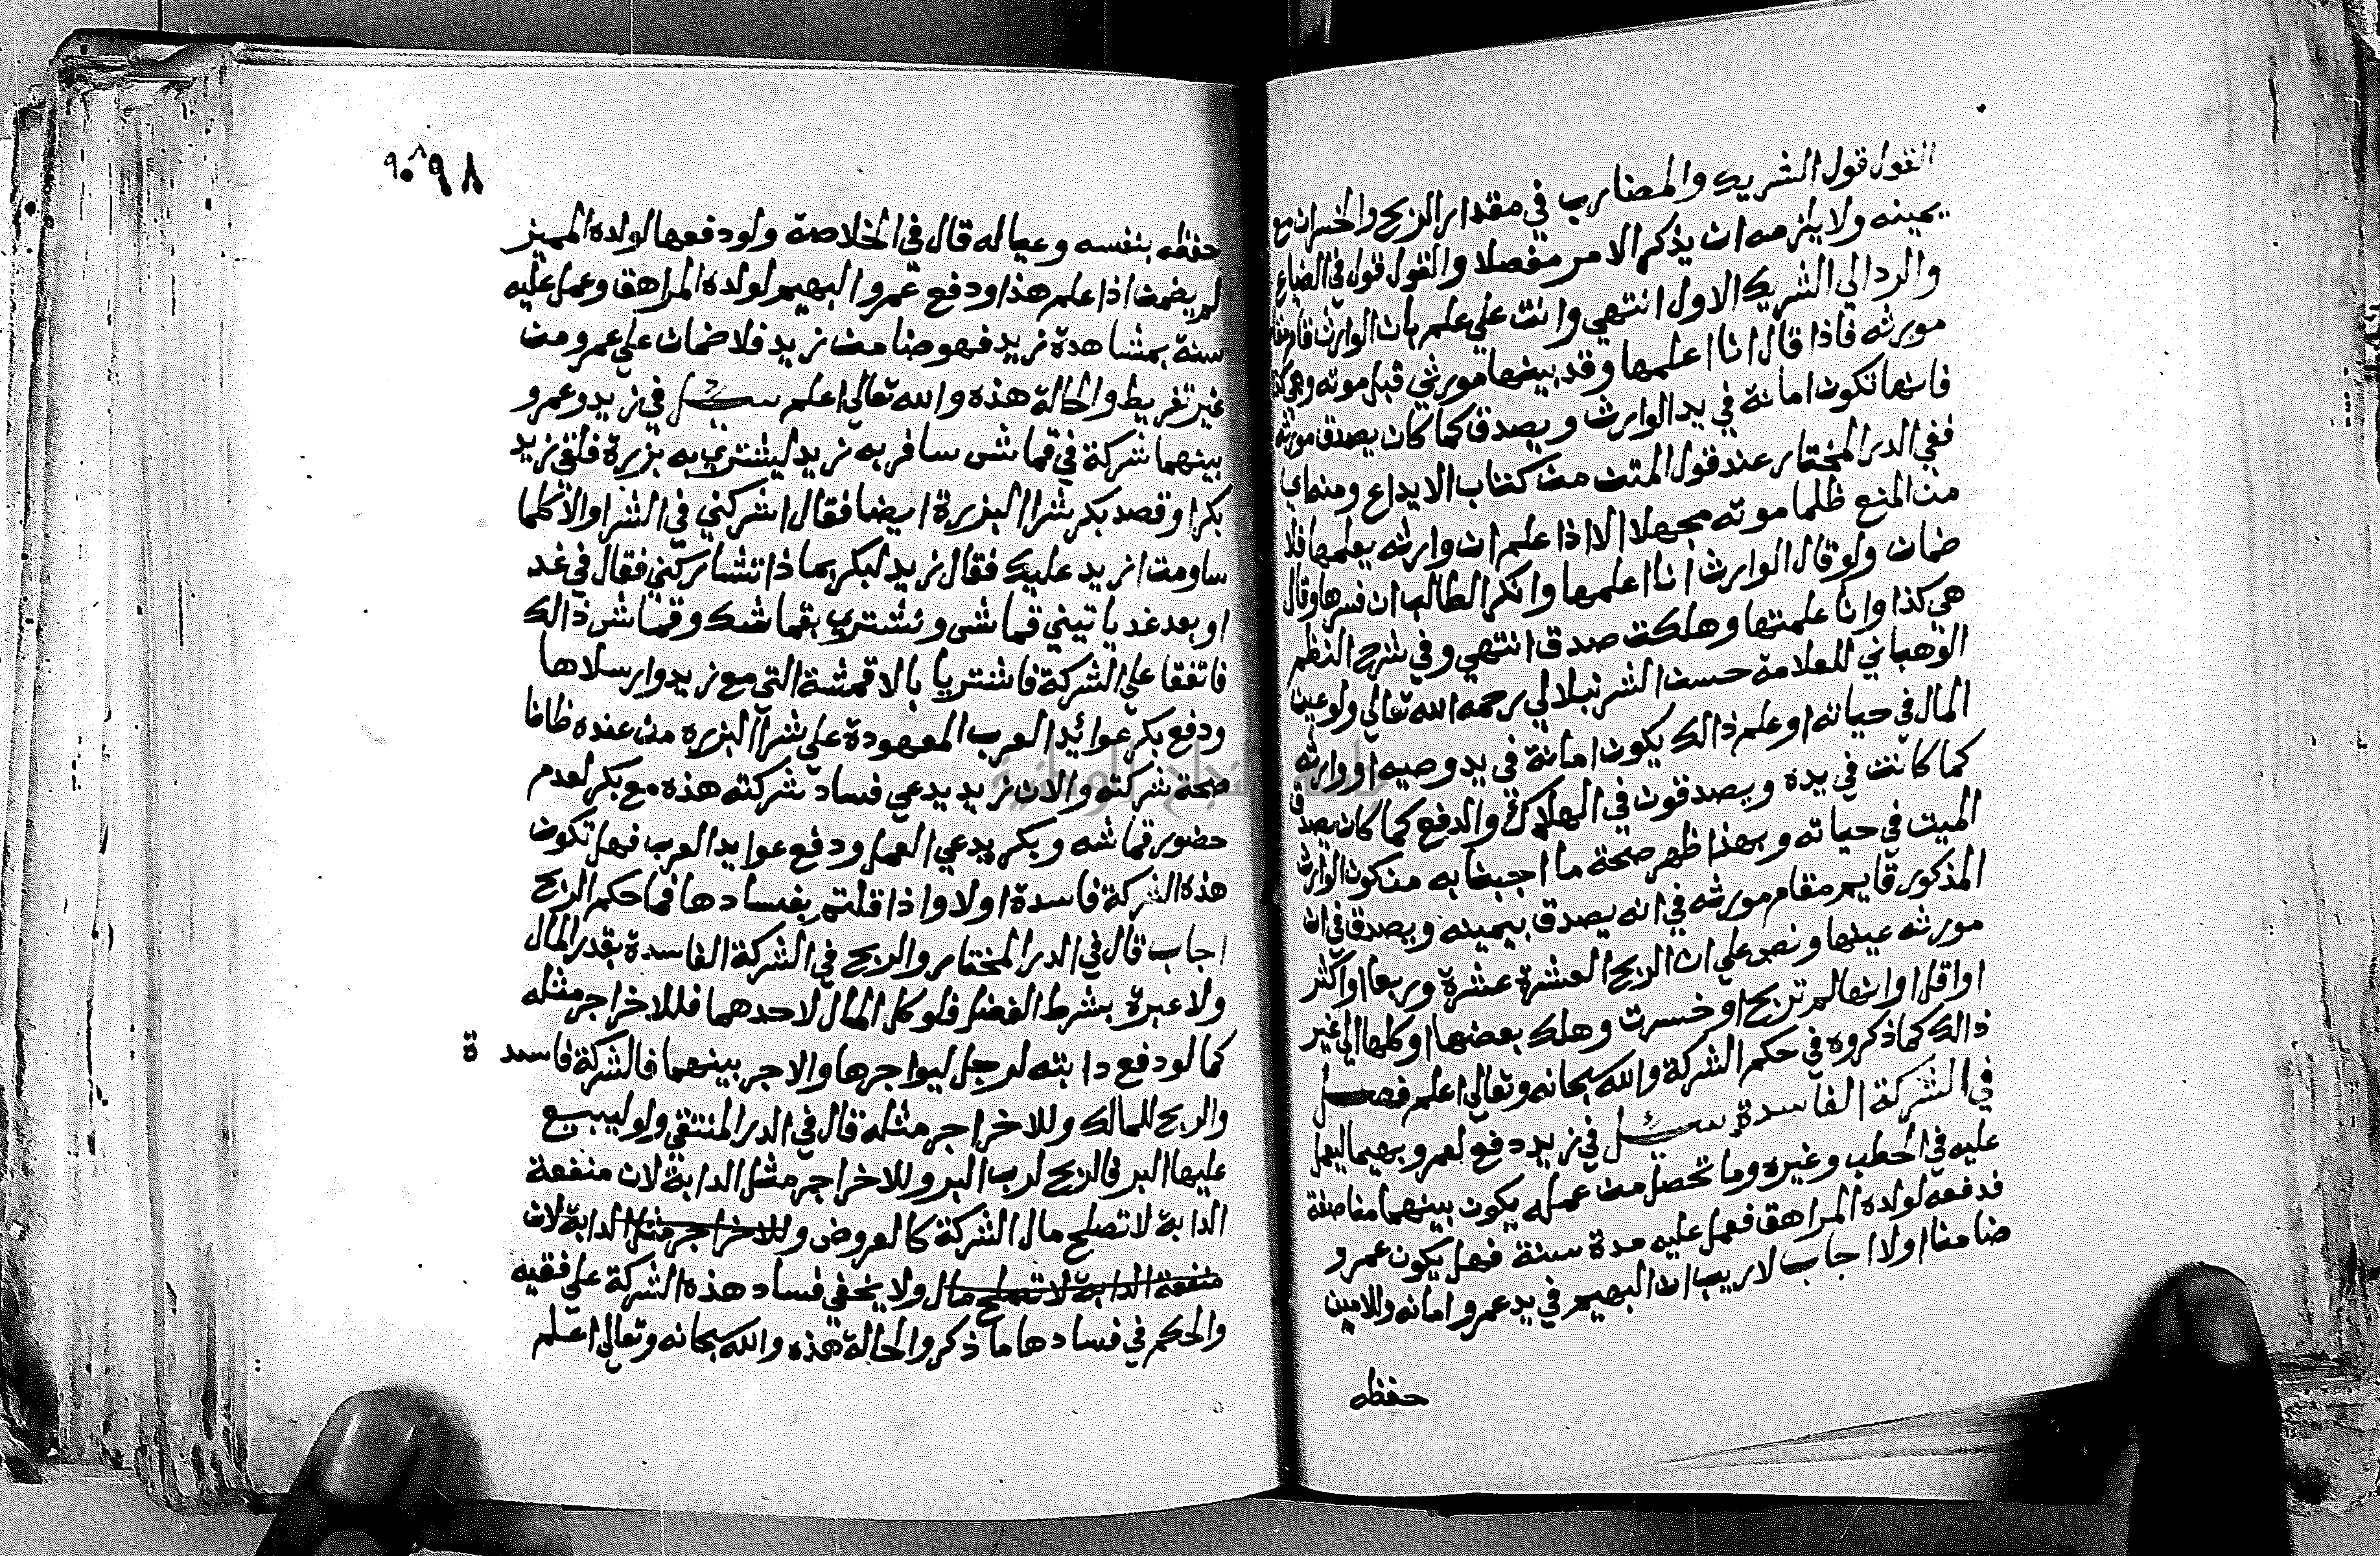 القول قول الشريك والمضارب في مقدار الربح والخسران مع
يمينه ولا يلزمه ان يذكر الامر مفصلا والقول قوله في الضياع
والرد الي الشريك الاول انتهي وانت علي علم بان الوارث قام مقام
مورثه فاذا قال انا اعلمها وقد بينها مورثي قبل موته وهي كذا
فانها تكون امانة في يد الوارث ويصدق كما كان يصدق مورثه
ففي الدر المختار عند قول المتن من كتاب الايداع ومنها اي
من المنع ظلما موته مجهلا الا اذا علم ان وارثه يعلمها فلا
ضمان ولو قال الوارث انا اعلمها وانكر الطالب ان فسرها وقال
هي كذا وانا علمتها وهلكت صدق انتهي وفي شرح النظم
الوهباني للعلامة حسن الشرنبلالي رحمه الله تعالي ولو عين
المال في حياته او علم ذالك يكون امانة في يد وصيه او وارثه
كما كانت في يده ويصدقون في الهلاك والدفع كما كان يصدق
الميت في حياته وبهذا ظهر صحة ما اجبنا به من كون الوارث
المذكور قايم مقام مورثه في انه يصدق بيمينه ويصدق في ان
مورثه عينها ونص علي ان الربح العشرة عشرة وربعا او اكثر
او اقل او انها لم تربح او خسرت وهلك بعضها او كلها الي غير
ذالك كما ذكروه في حكم الشركة والله سبحانه وتعالي اعلم فصل
في الشركة الفاسدة سئل في زيد دفع لعمرو بهيما ليعمل
عليه في الحطب وغيره وما تحصل من عمله يكون بينهما مناصفة
فدفعه لولده المراهق فعمل عليه مدة سنة فهل يكون عمرو
ضامنا اولا اجاب لا ريب ان البهيم في يد عمرو امانه وللامين
حفظه
٩٨ ٩٠٨
حفظه بنفسه وعياله قال في الخلاصة ولو دفعها لولده المميز
لم يضمن اذا علم هذا ودفع عمرو البهيم لولده المراهق وعمل عليه
سنة بمشاهدة زيد فهو ضامن زيد فلا ضمان علي عمرو من
غير تفريط والحالة هذه والله تعالي اعلم سئل في زيد وعمرو
بينهما شركة في قماش سافر به زيد ليشتري به بزرة فلقي زيد
بكرا وقصد بكر شرا البزرة ايضا فقال اشركني في الشرا والا كلما
ساومت ازيد عليك فقال زيد لبكر بماذا تشاركني فقال في غد
او بعد غد ياتيني قماشي ونشتري بقماشك وقماشي ذالك
فاتفقا علي الشركة فاشتريا بالاقمشة التي مع زيد وارسلاها
ودفع بكر عوائد العرب المعهودة علي شرا البزره من عنده ظانا
صحة شركته والان زيد يدعي فساد شركته هذه مع بكر لعدم
حضور قماشه وبكر يدعي العمل ودفع عوايد العرب فهل تكون
هذه الشركة فاسدة اولا واذا قلتم بفسادها فما حكم الربح
اجاب قال في الدر المختار والربح في الشركة الفاسدة بقدر المال
ولا عبرة بشرط الفضل فلو كل المال لاحدهما فللاخر اجر مثله
كما لو دفع دابته لرجل ليواجرها والاجر بينهما فالشركة فاسدة
والربح للمالك وللاخر اجر مثله قال في الدر المنتقي ولو ليبيع
عليها البر فالربح لرب البر وللاخر اجر مثل الدابة لان منفعة
الدابة لا تصلح مال الشركة كالعروض وللاخر اجر مثل الدابة لان
منفعة الدابة لا تصلح مال ولا يخفي فساد هذه الشركة علي فقيه
والحكم في فسادها ما ذكر والحالة هذه والله سبحانه وتعالي اعلم